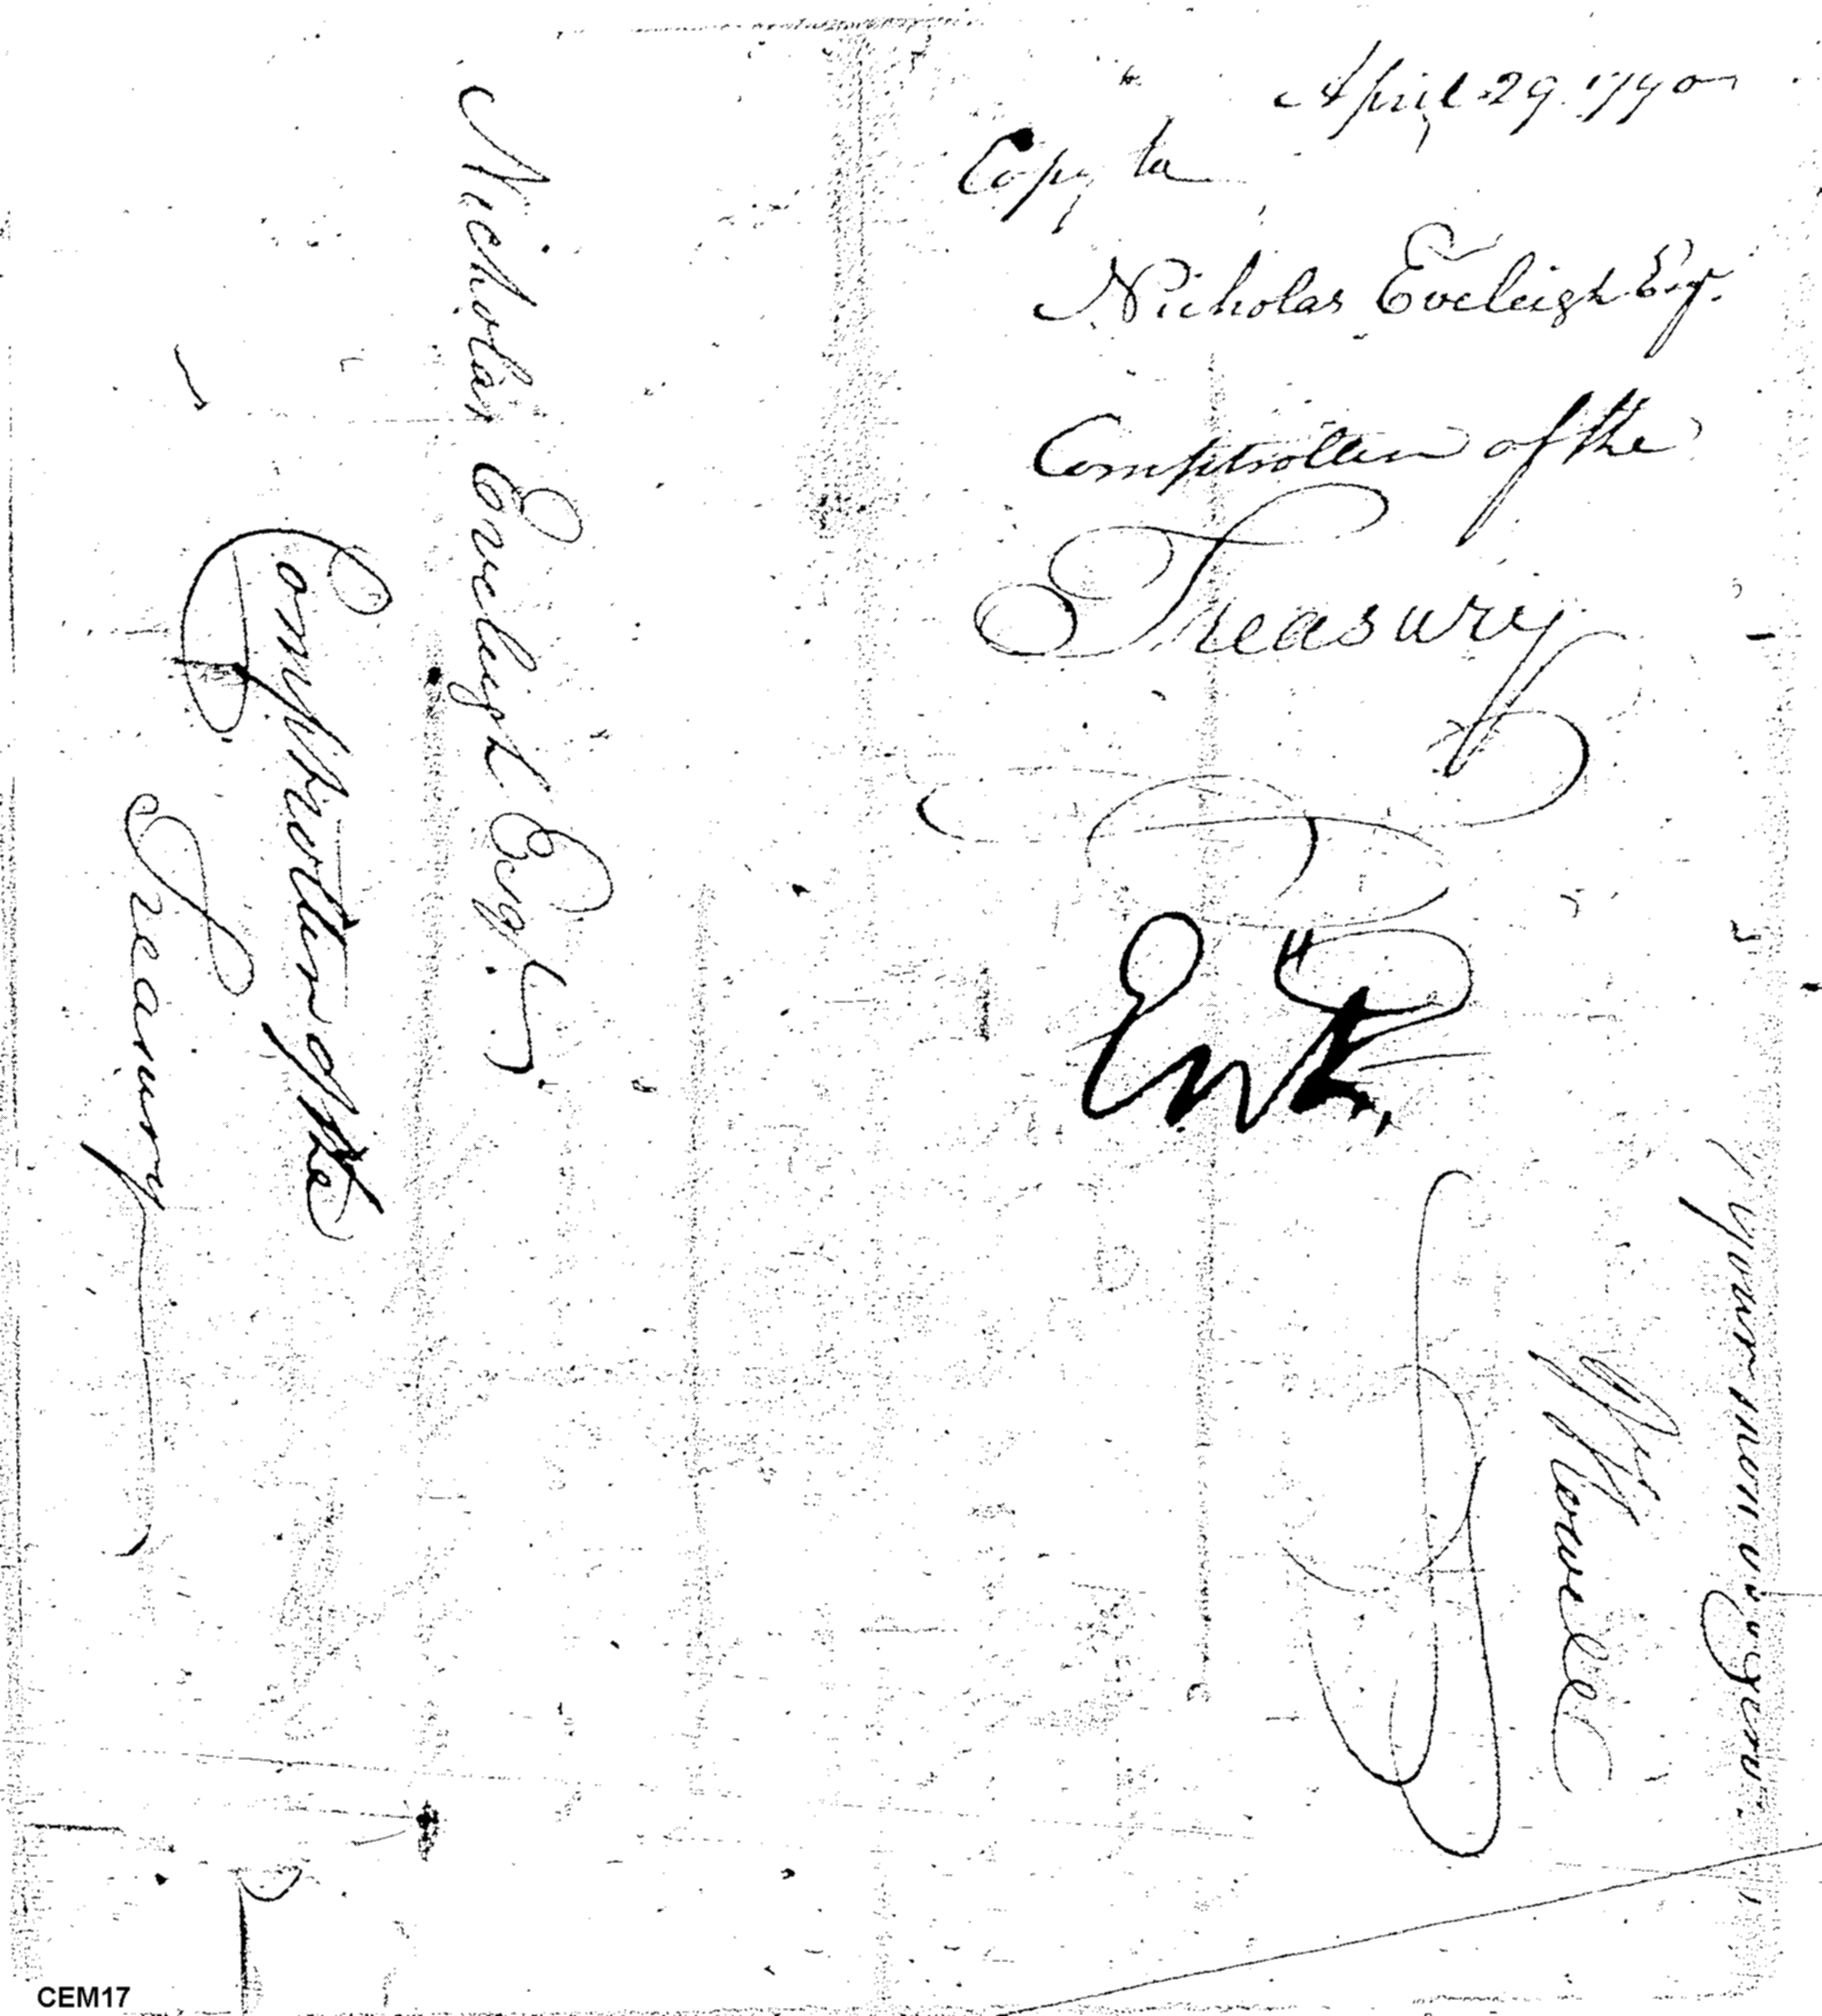 April 29. 1790
Copy to
Nicholas Eveleigh Esqr.
Comptroller of the
Treasury
Entd.
Nicholas Eveleigh Esqr
Comptroller of the
Treasury
Your
CEM17